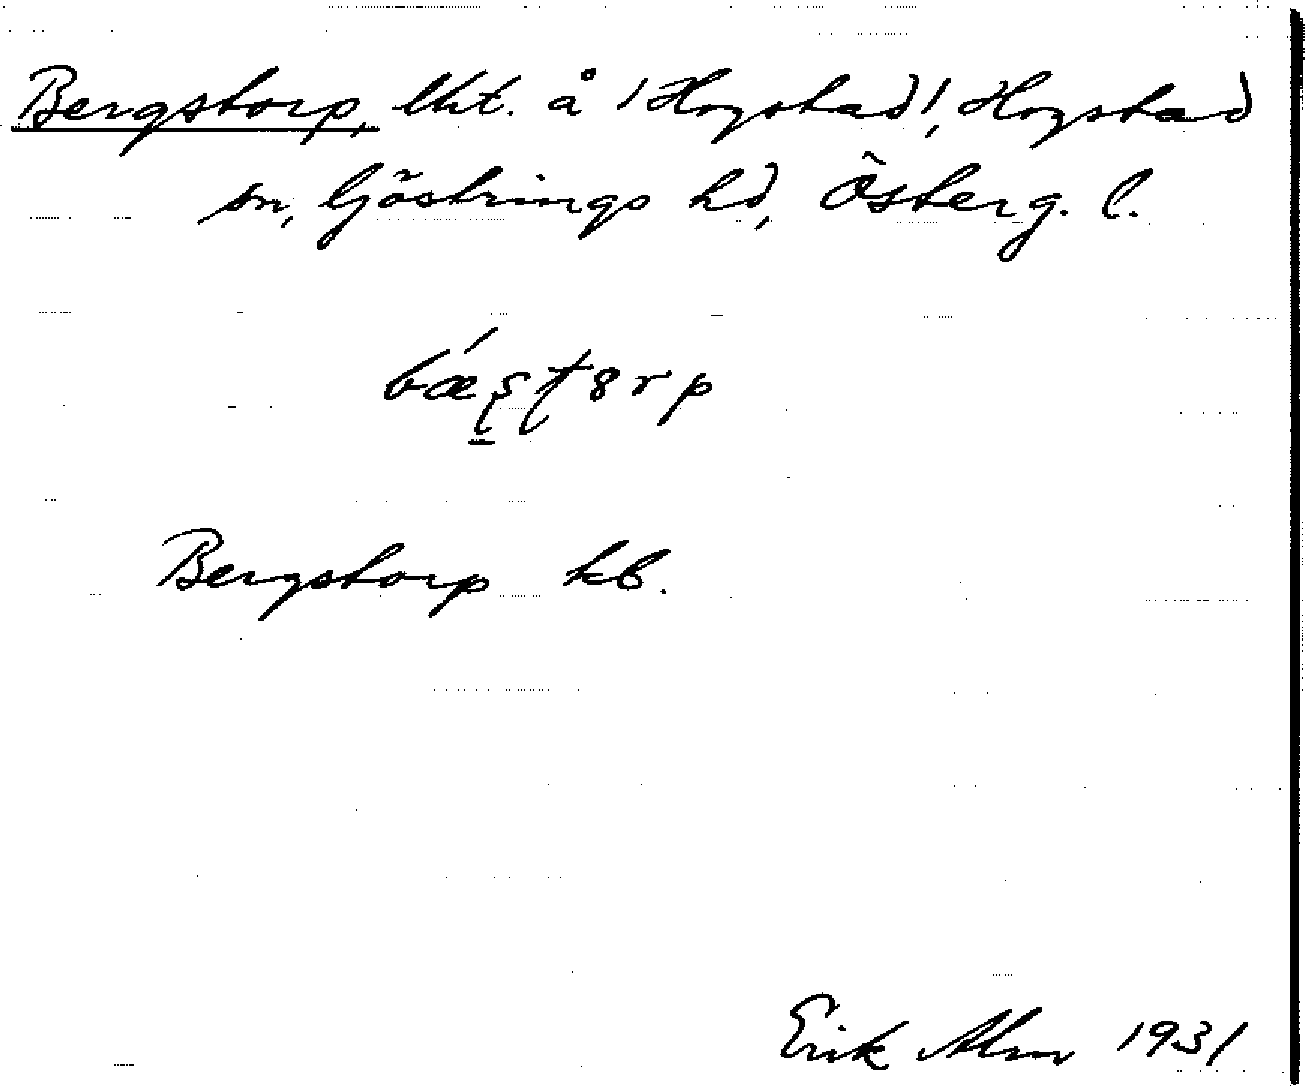 Bergstorp, lht. å /Hogstad/, Hogstad
sn, Göstrings hd, Österg. l.
bǽʂʈ8rp
Bergstorp kb.
Erik Alm 1931